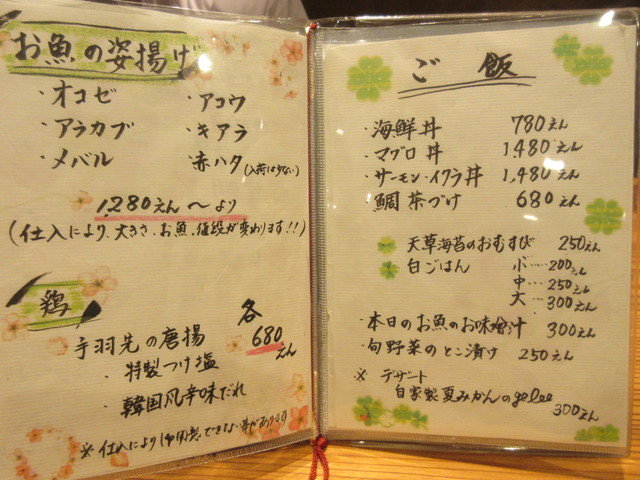 お魚の姿揚げ
・オコゼ ・アコウ
・アラカブ ・キアラ
・メバル ・赤ハタ(入荷は少ない)
1,280えん〜より
(仕入により、大きさ、お魚、値段が変わります!!)
鶏
手羽先の唐揚 各680えん
・特製つけ塩
・韓国風辛味だれ
※仕入により
ご飯
・海鮮丼 780えん
・マグロ丼 1,480えん
・サーモン・イクラ丼 1,480えん
・鯛茶づけ 680えん
天草海苔のおむすび 250えん
白ごはん 小…200えん
中…250えん
大…300えん
・本日のお魚のお味噌汁 300えん
・旬野菜のとこ漬け 250えん
※デザート
自家製夏みかんのgelee
300えん